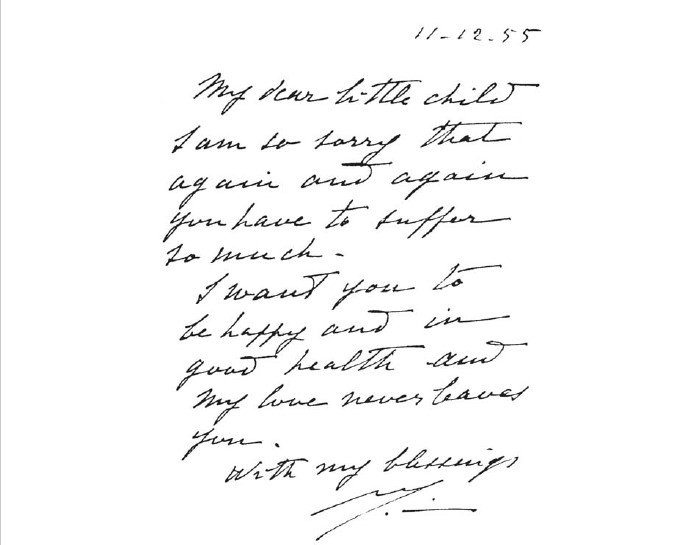 11-12-55
My dear little child
I am so sorry that
again and again
you have to suffer
so much -
I want you to
be happy and in
good health and
my love never leaves
you.
With my blessings